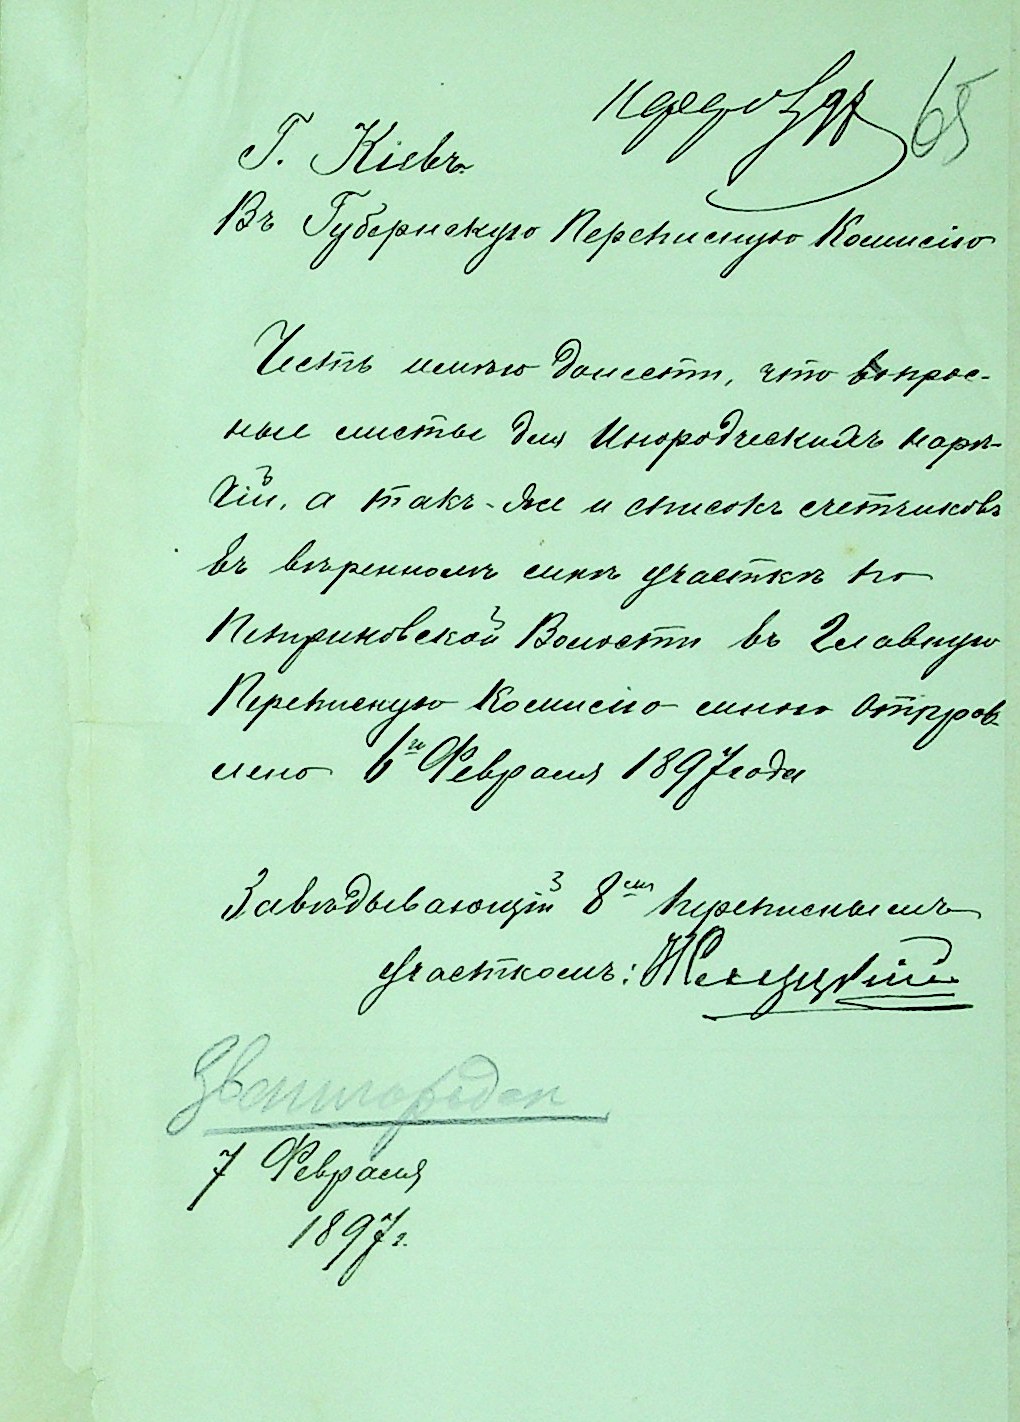 65
Г. Кіевъ
Въ Губернскую Переписную Комисію
Честь имѣю донести, что вопрос-
ные листы для Инородческихъ нарѣ-
чій, а такъ-же и списокъ счетчиковъ
въ ввѣренномъ мнѣ участкѣ по
Петриковской Волости въ Главную
Переписную Комисію мною отправ-
лено 6го Февраля 1897 года
Завѣдывающій 8мъ переписнымъ
участкомъ:
Звенигородск
7 Февраля
1897 г.